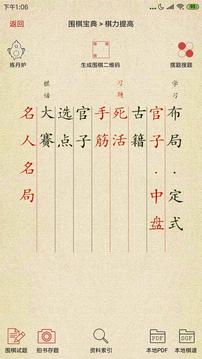 下午1:06
返回
围棋宝典 > 棋力提高
炼丹炉
生成围棋二维码
摆题搜题
学习
布局·定式
官子·中盘
古籍
习题
死活
手筋
官子
选点
大赛
名人名局
围棋试题
拍书存题
资料索引
PDF
本地PDF
SGF
本地棋谱